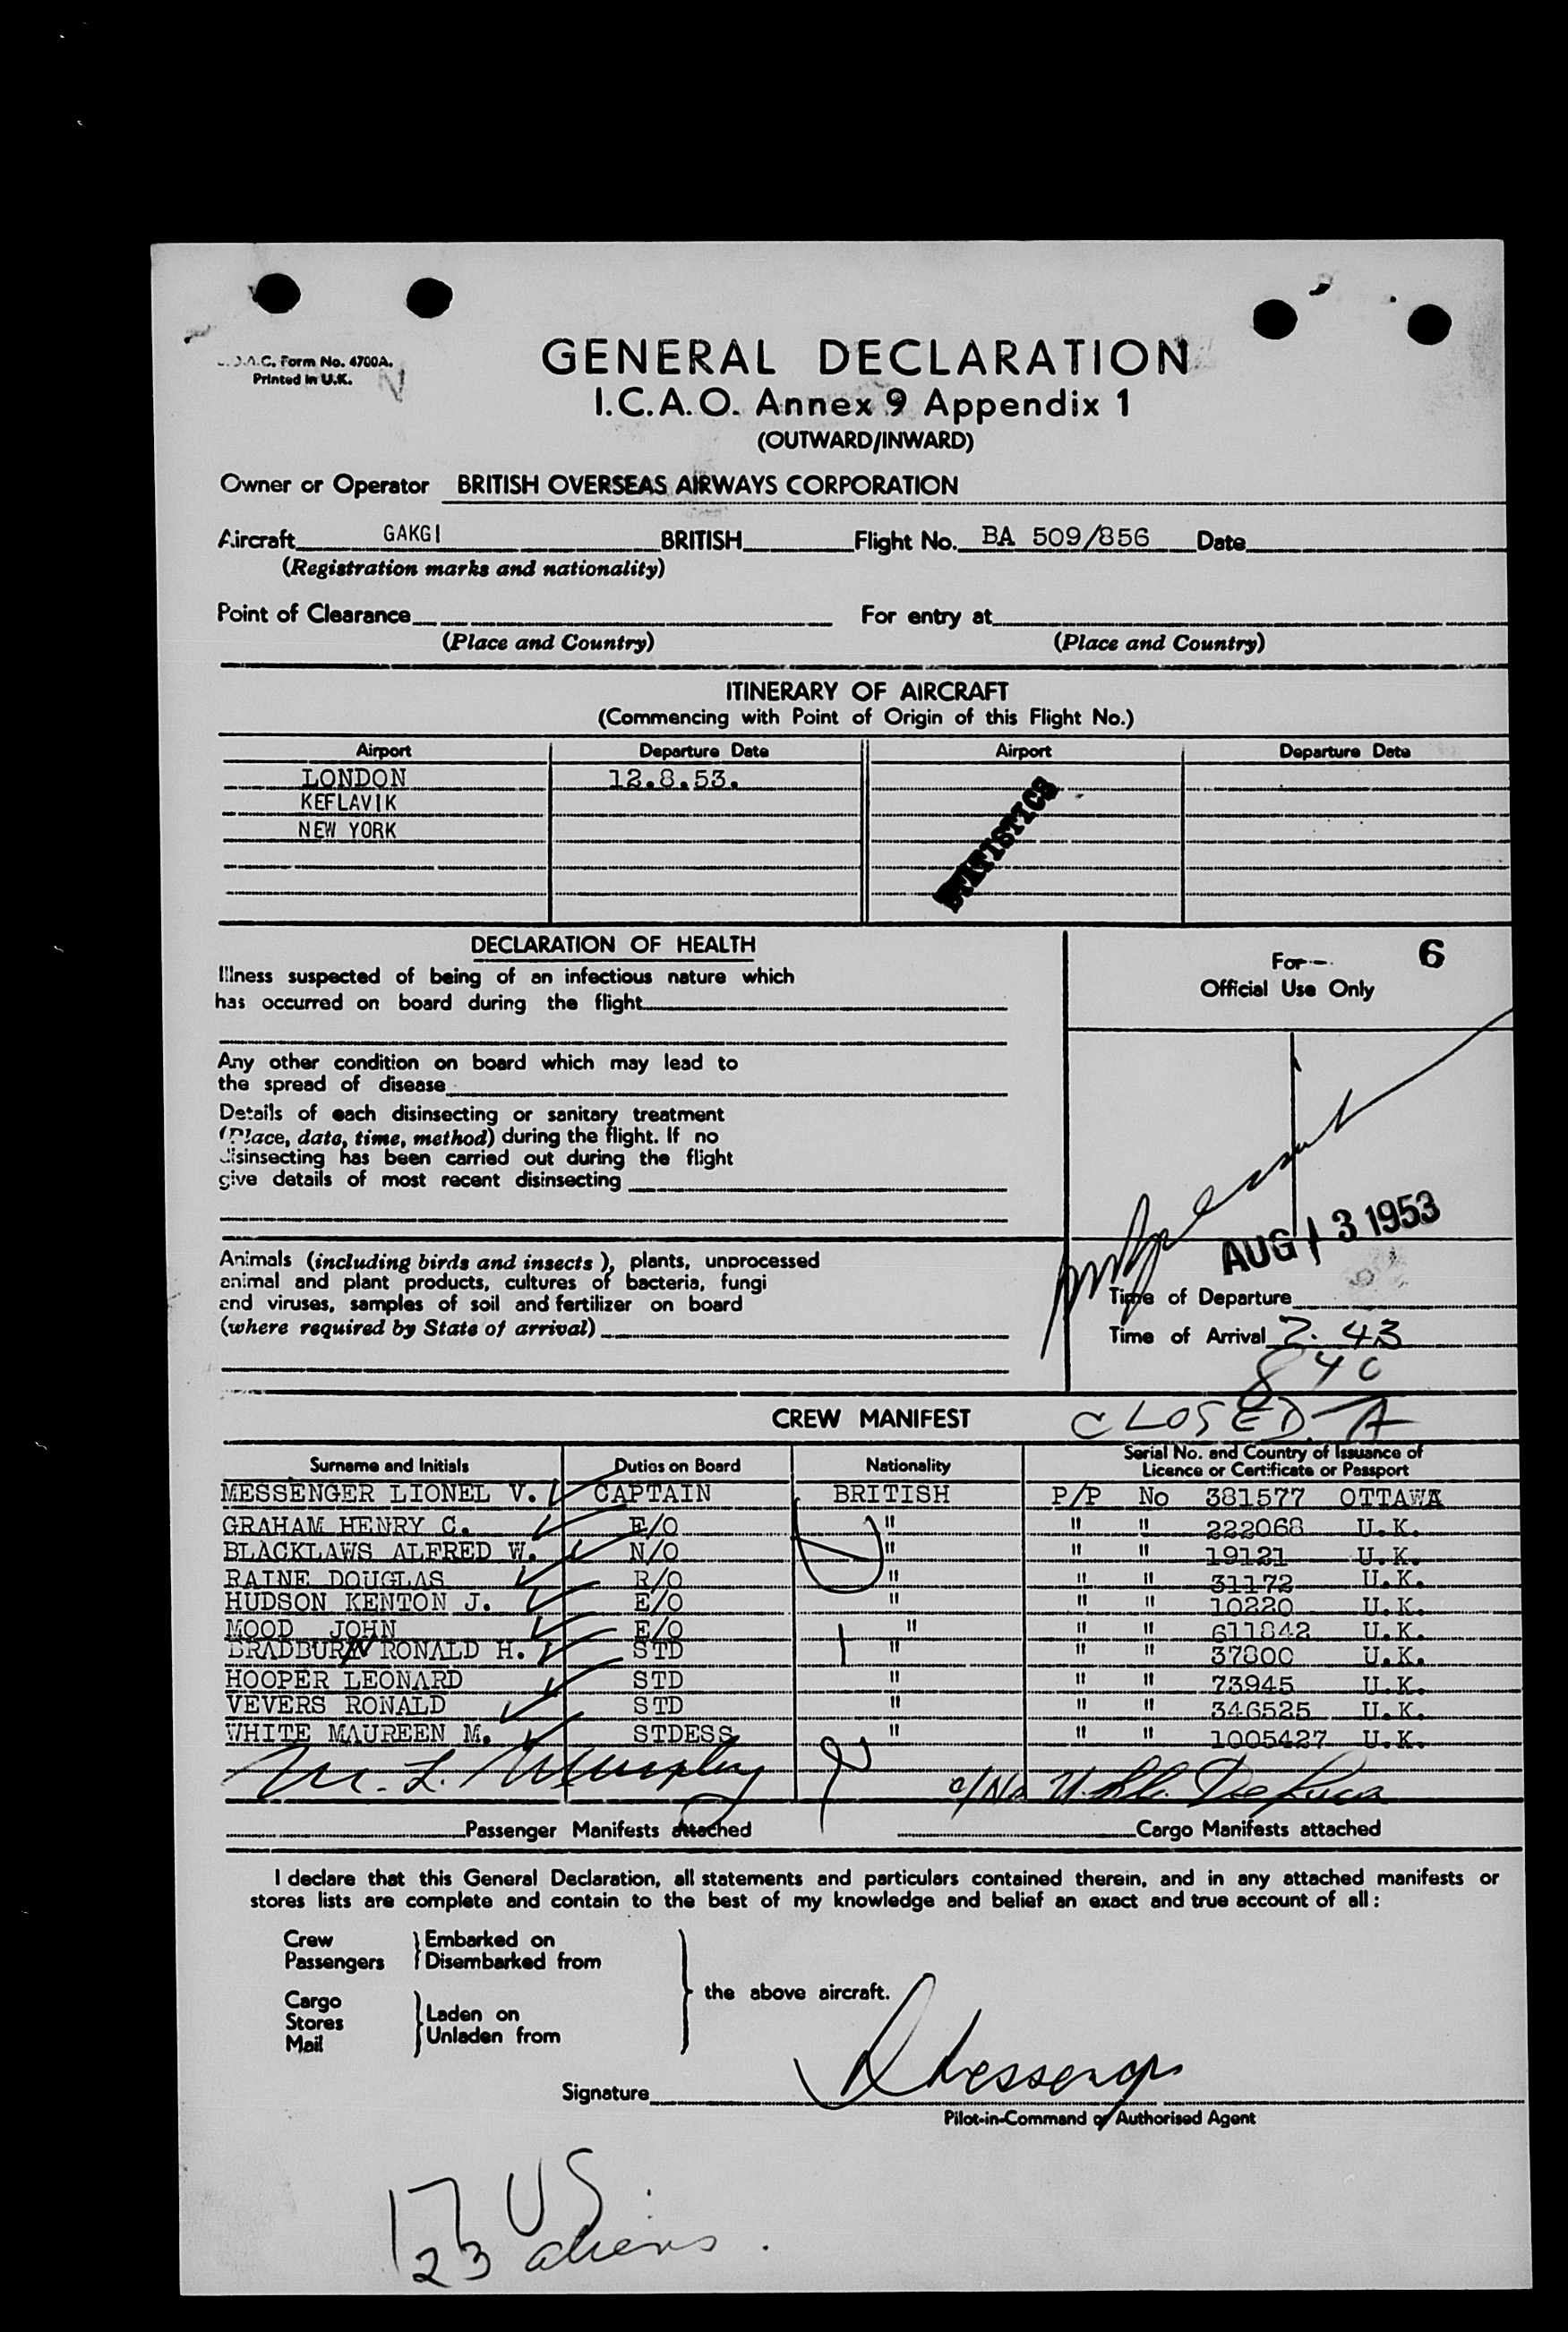 Form No. 4700A.
Printed in U.K.
GENERAL DECLARATION
I.C.A.O. Annex 9 Appendix 1
(OUTWARD/INWARD)
Owner or Operator BRITISH OVERSEAS AIRWAYS CORPORATION
Aircraft GAKGI BRITISH Flight No. BA 509/856 Date
(Registration marks and nationality)
Point of Clearance For entry at
(Place and Country) (Place and Country)
ITINERARY OF AIRCRAFT
(Commencing with Point of Origin of this Flight No.)
Airport Departure Date Airport Departure Date
LONDON 12.8.53.
KEFLAVIK
NEW YORK
STATISTICS
DECLARATION OF HEALTH
Illness suspected of being of an infectious nature which
has occurred on board during the flight
Any other condition on board which may lead to
the spread of disease
Details of each disinsecting or sanitary treatment
(Place, date, time, method) during the flight. If no
disinsecting has been carried out during the flight
give details of most recent disinsecting
Animals (including birds and insects), plants, unprocessed
animal and plant products, cultures of bacteria, fungi
and viruses, samples of soil and fertilizer on board
(where required by State of arrival)
For 6
Official Use Only
AUG 13 1953
Time of Departure
Time of Arrival 7.43
840
CLOSED
CREW MANIFEST
Surname and Initials Duties on Board Nationality Serial No. and Country of Issuance of
Licence or Certificate or Passport
MESSENGER LIONEL V. CAPTAIN BRITISH P/P No 381577 OTTAWA
GRAHAM HENRY C. F/O " " " 222068 U.K.
BLACKLAWS ALFRED W. N/O " " " 19121 U.K.
RAINE DOUGLAS R/O " " " 31172 U.K.
HUDSON KENTON J. E/O " " " 10220 U.K.
MOOD JOHN E/O " " " 611842 U.K.
BRADBURN RONALD H. STD " " " 37800 U.K.
HOOPER LEONARD STD " " " 73945 U.K.
VEVERS RONALD STD " " " 346525 U.K.
WHITE MAUREEN M. STDESS " " " 1005427 U.K.
Passenger Manifests attached Cargo Manifests attached
I declare that this General Declaration, all statements and particulars contained therein, and in any attached manifests or
stores lists are complete and contain to the best of my knowledge and belief an exact and true account of all:
Crew Embarked on
Passengers Disembarked from
the above aircraft.
Cargo
Stores Laden on
Mail Unladen from
Signature
Pilot-in-Command or Authorised Agent
17 US
23 aliens.